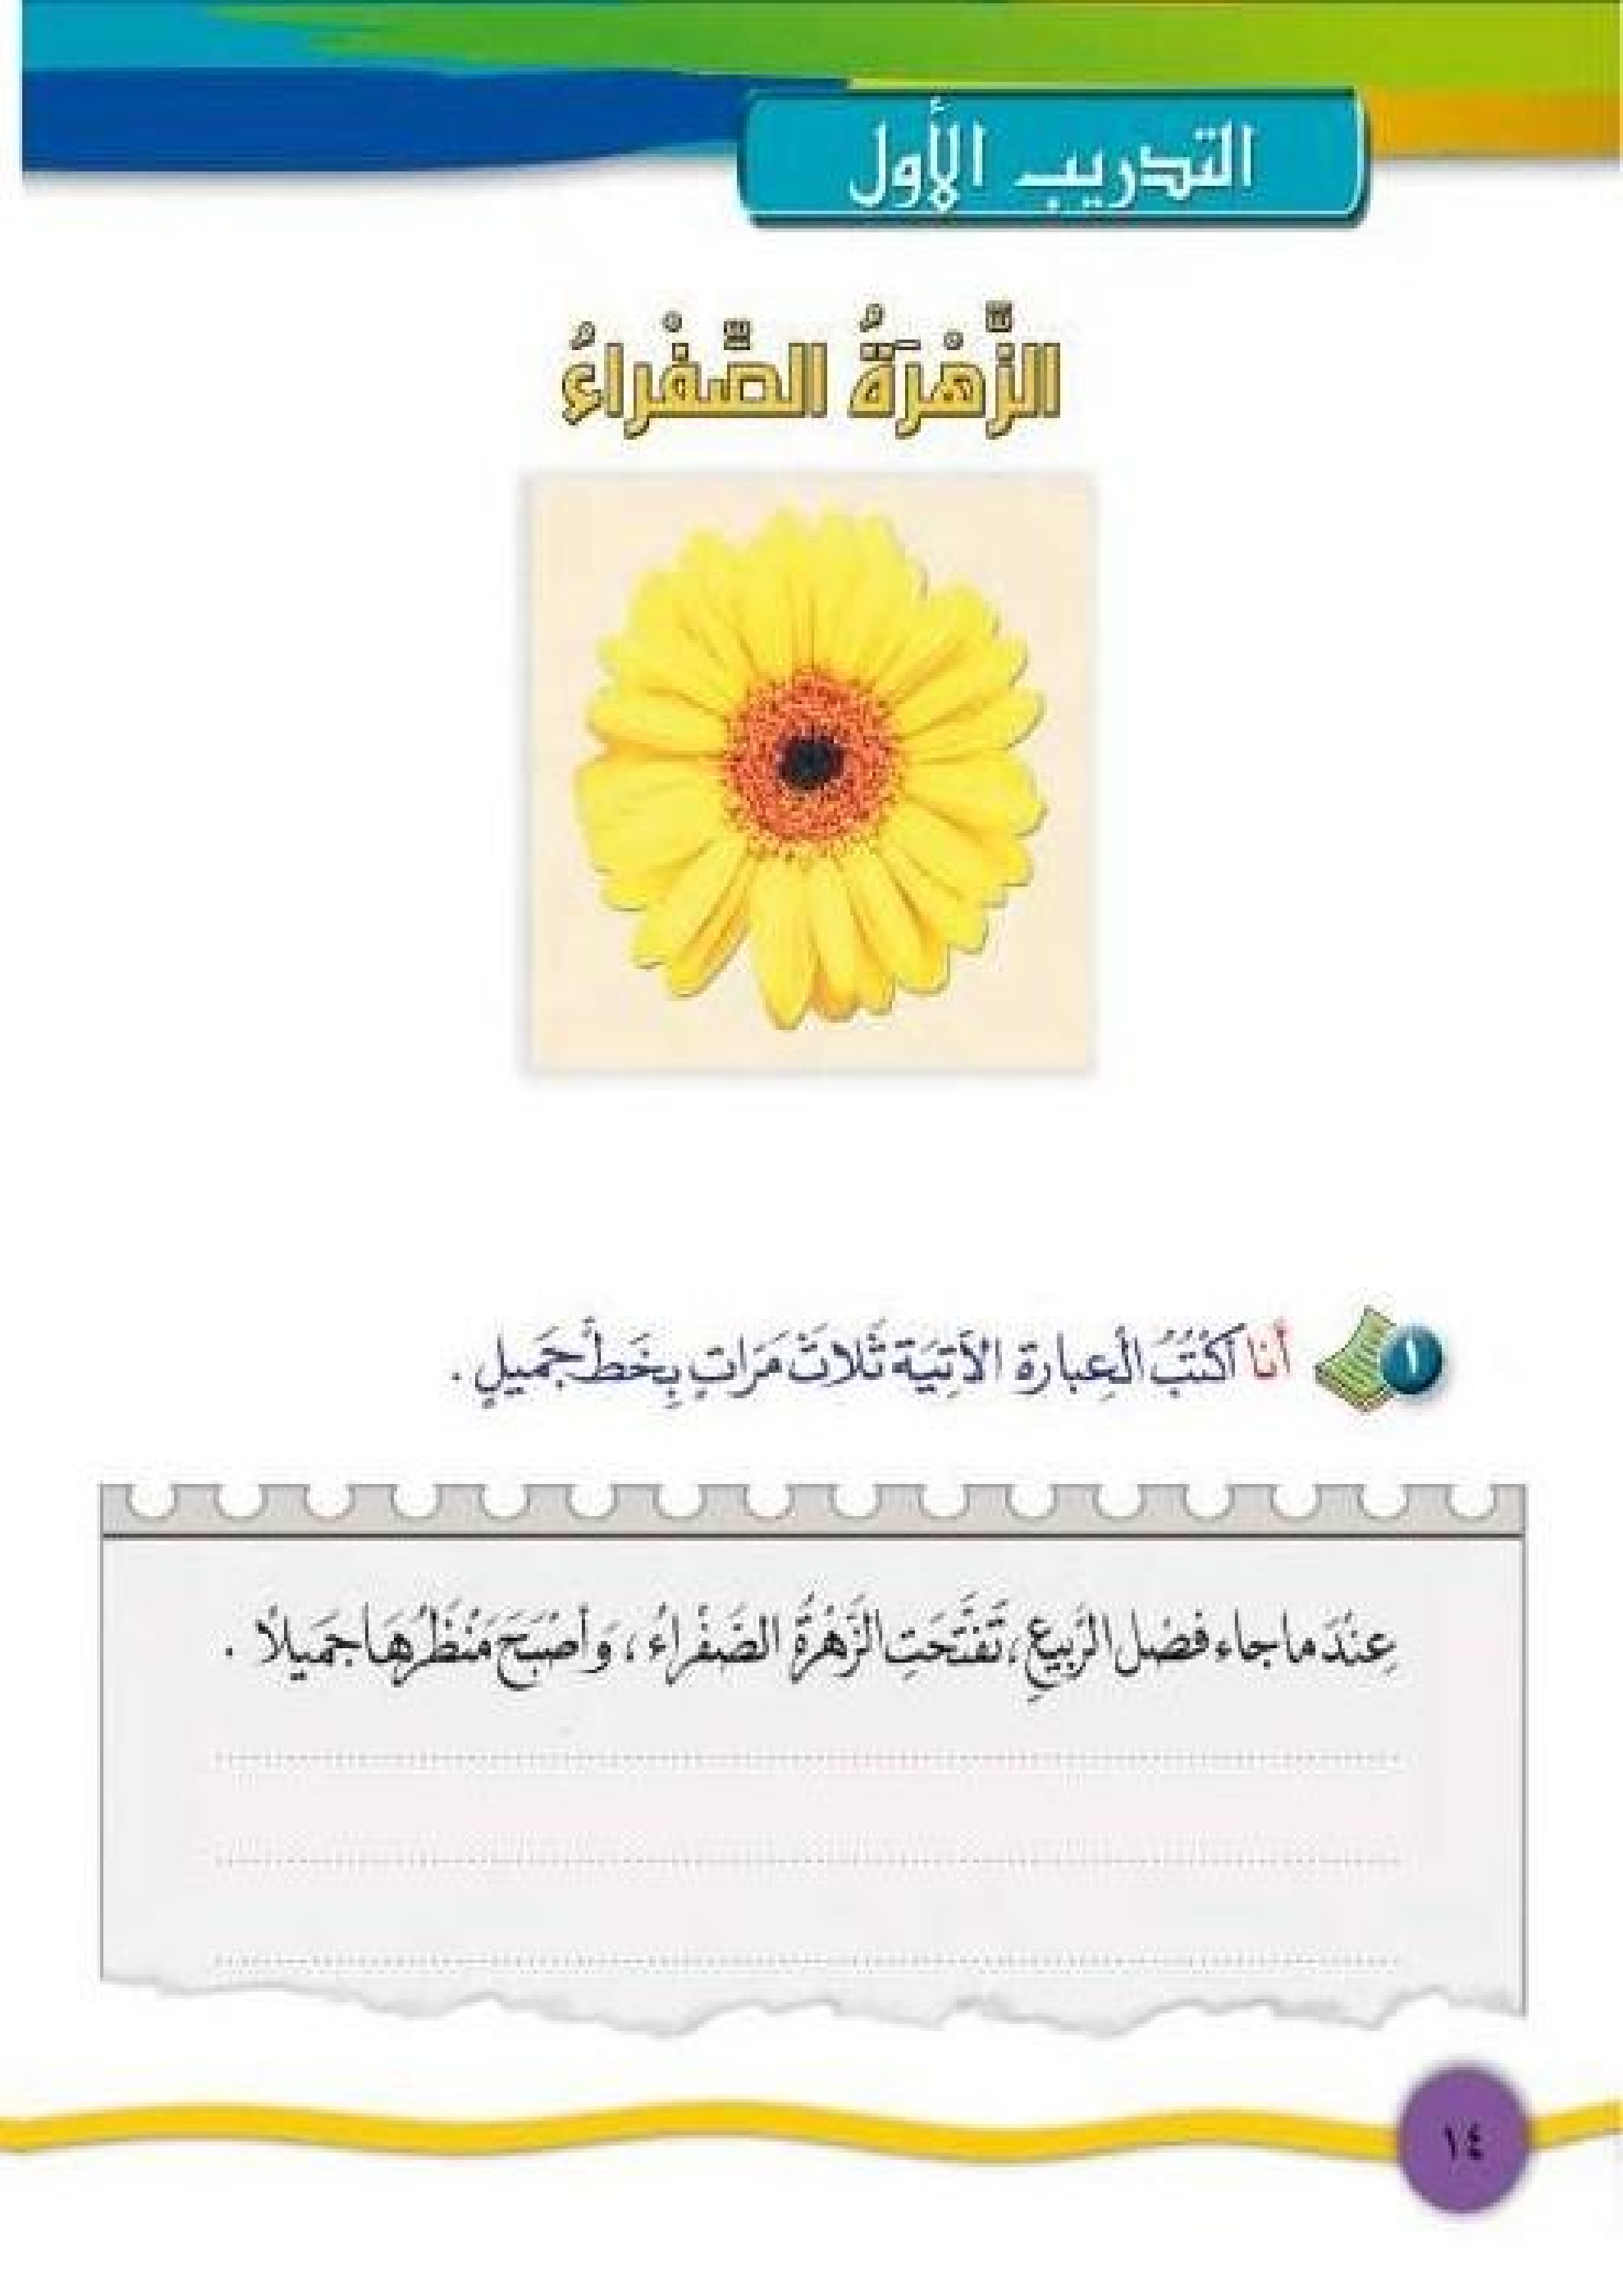 التدريب الأول
الزَّهْرَةُ الصَّفْراءُ
١ أَنا أَكْتُبُ الْعِبارة الآتِيَة ثَلاثَ مَرّاتٍ بِخَطٍّ جَميلٍ .
عِنْدَما جاء فصْل الرَّبيعِ ، تَفَتَّحَتِ الزَّهْرَةُ الصَّفْراءُ ، وَأَصْبَحَ مَنْظَرُهَا جَميلاً .
١٤